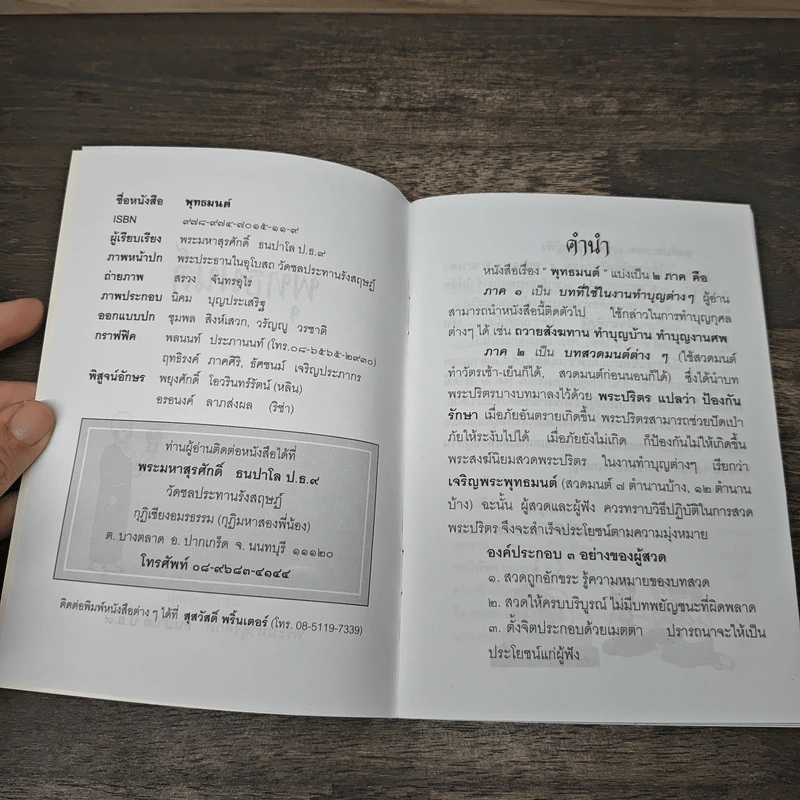 ชื่อหนังสือ พุทธมนต์
ISBN ๙๗๘-๙๗๔-๗๐๑๕-๑๑-๙
ผู้เรียบเรียง พระมหาสุรศักดิ์ ธนปาโล ป.ธ.๙
ภาพหน้าปก พระประธานในอุโบสถ วัดชลประทานรังสฤษฎ์
ถ่ายภาพ สรวง จันทรอุไร
ภาพประกอบ นิคม บุญประเสริฐ
ออกแบบปก ชุมพล สิงห์เสวก, วรัญญู วรชาติ
กราฟฟิค พลนนท์ ประภานนท์ (โทร.๐๘-๖๕๖๕-๒๙๓๐)
ฤทธิรงค์ ภาคศิริ, ธัศซนม์ เจริญประภากร
พิสูจน์อักษร พยุงศักดิ์ โอวรินทร์รัตน์ (หลิน)
อรอนงค์ ลาภส่งผล (ริช่า)
ท่านผู้อ่านติดต่อหนังสือได้ที่
พระมหาสุรศักดิ์ ธนปาโล ป.ธ.๙
วัดชลประทานรังสฤษฎ์
กุฏิเซียงอมรธรรม (กุฏิมหาสองพี่น้อง)
ต. บางตลาด อ. ปากเกร็ด จ. นนทบุรี ๑๑๑๒๐
โทรศัพท์ ๐๘-๙๖๘๓-๔๑๔๔
ติดต่อพิมพ์หนังสือต่าง ๆ ได้ที่ สุสวัสดิ์ พริ้นเตอร์ (โทร. 08-5119-7339)
คำนำ
หนังสือเรื่อง " พุทธมนต์ " แบ่งเป็น ๒ ภาค คือ
ภาค ๑ เป็น บทที่ใช้ในงานทำบุญต่างๆ ผู้อ่าน
สามารถนำหนังสือนี้ติดตัวไป ใช้กล่าวในการทำบุญกุศล
ต่างๆ ได้ เช่น ถวายสังฆทาน ทำบุญบ้าน ทำบุญงานศพ
ภาค ๒ เป็น บทสวดมนต์ต่าง ๆ (ใช้สวดมนต์
ทำวัตรเช้า-เย็นก็ได้, สวดมนต์ก่อนนอนก็ได้) ซึ่งได้นำบท
พระปริตรบางบทมาลงไว้ด้วย พระปริตร แปลว่า ป้องกัน
รักษา เมื่อภัยอันตรายเกิดขึ้น พระปริตรสามารถช่วยปัดเป่า
ภัยให้ระงับไปได้ เมื่อภัยยังไม่เกิด ก็ป้องกันไม่ให้เกิดขึ้น
พระสงฆ์นิยมสวดพระปริตร ในงานทำบุญต่างๆ เรียกว่า
เจริญพระพุทธมนต์ (สวดมนต์ ๗ ตำนานบ้าง, ๑๒ ตำนาน
บ้าง) ฉะนั้น ผู้สวดและผู้ฟัง ควรทราบวิธีปฏิบัติในการสวด
พระปริตร จึงจะสำเร็จประโยชน์ตามความมุ่งหมาย
องค์ประกอบ ๓ อย่างของผู้สวด
๑. สวดถูกอักขระ รู้ความหมายของบทสวด
๒. สวดให้ครบบริบูรณ์ ไม่มีบทพยัญชนะที่ผิดพลาด
๓. ตั้งจิตประกอบด้วยเมตตา ปรารถนาจะให้เป็น
ประโยชน์แก่ผู้ฟัง